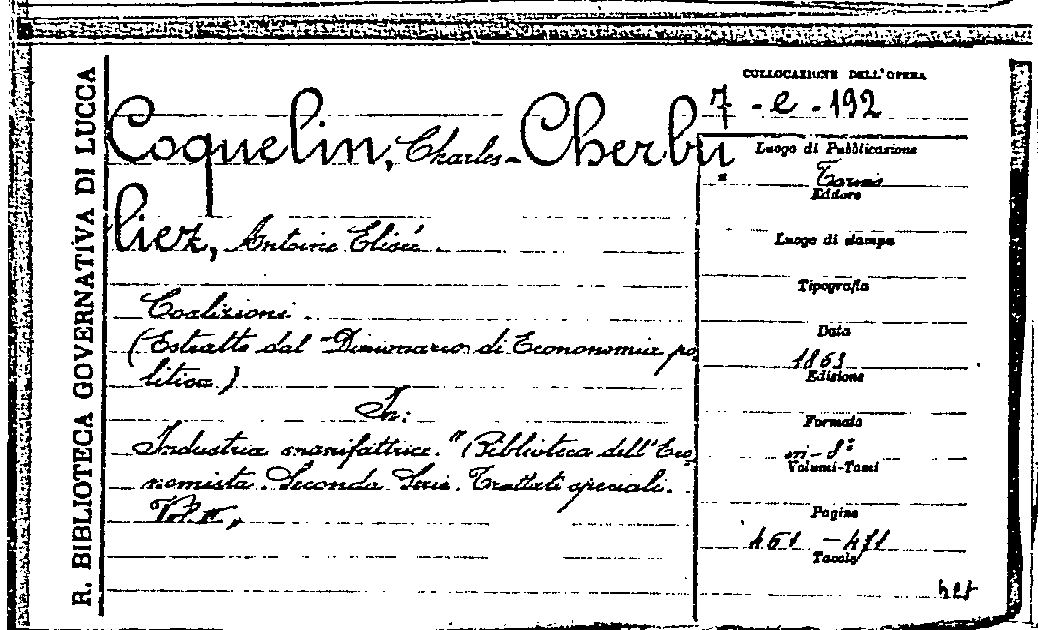 R. BIBLIOTECA GOVERNATIVA DI LUCCA
Coquelin, Charles - Cherbu
liez, Antoine Elisée.
Coalizioni.
(Estratto dal Dizionario di Economia po
litica)
In:
Industria manifattrice. "Biblioteca dell'Eco
nomista. Seconda Serie. Trattati speciali.
Vol. II"
COLLOCAZIONE DELL'OPERA
7 - e - 192
Luogo di Pubblicazione
Torino
Editore
Luogo di stampa
Tipografia
Data
1863
Edizione
Formato
in-8º
Volumi-Tomi
Pagine
461 - 471
Tavole